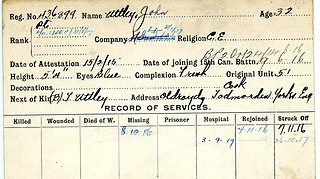 Reg. No. 436899 Name Uttley, John Age 32
Pt
Rank Company Religion C.E
Date of Attestation 15/2/15 Date of joining 15th Can. Battn. 9.6.16
Height 5'4" Eyes Blue Complexion Fresh Original Unit 51
Decorations Cook
Next of Kin Uttley Address Todmorden Yorks. Eng
RECORD OF SERVICES.
Killed Wounded Died of W. Missing Prisoner Hospital Rejoined Struck Off
8.10.16 7.11.16 7.11.16
3.9.17